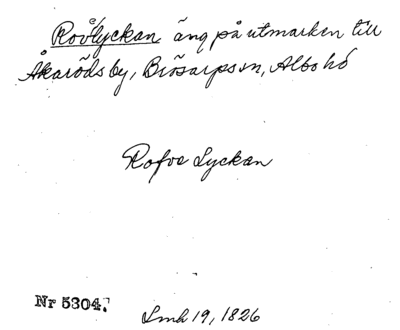 Rovlyckan äng på utmarken till
Åkaröds by, Brösarps sn, Albo hd
Rofve Lyckan
Nr 5304.
Lmh 19, 1826